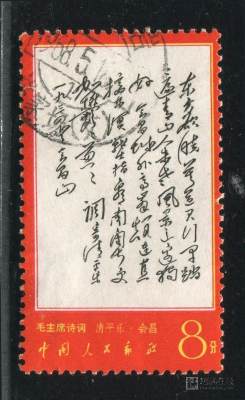 东方欲晓莫道君行早踏
遍青山人未老风景这边独
好会昌城外高峰颠连直
接东溟战士指看南粤更
加郁郁葱葱 调寄清平乐
会昌山
毛主席诗词 清平乐·会昌
中国人民邮政
8分